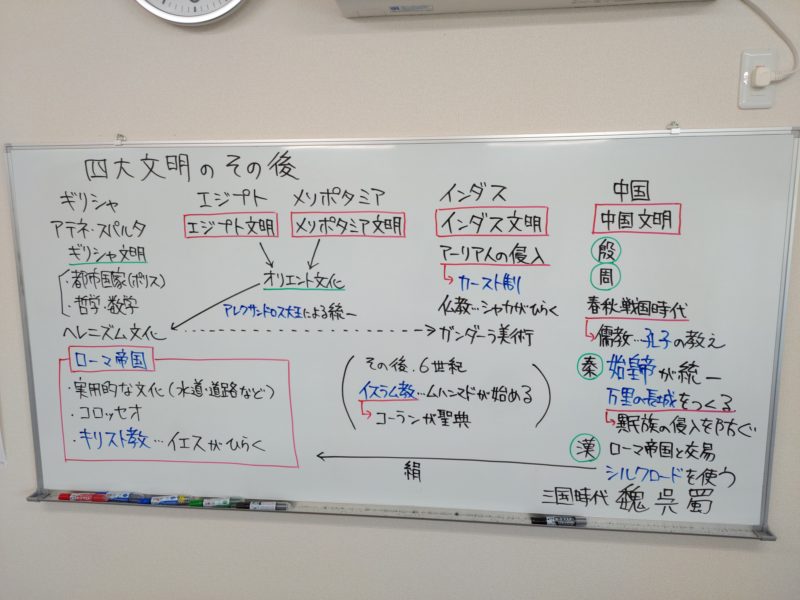 四大文明のその後
ギリシャ
アテネ・スパルタ
ギリシャ文明
・都市国家(ポリス)
・哲学・数学
ヘレニズム文化
ローマ帝国
・実用的な文化(水道・道路など)
・コロッセオ
・キリスト教…イエスがひらく
エジプト
エジプト文明
メソポタミア
メソポタミア文明
オリエント文化
アレクサンドロス大王による統一
インダス
インダス文明
アーリア人の侵入
カースト制
仏教…シャカがひらく
ガンダーラ美術
その後、6世紀
イスラム教…ムハンマドが始める
コーランが聖典
中国
中国文明
殷
周
春秋・戦国時代
儒教…孔子の教え
秦 始皇帝が統一
万里の長城をつくる
異民族の侵入を防ぐ
漢 ローマ帝国と交易
シルクロードを使う
絹
三国時代 魏 呉 蜀